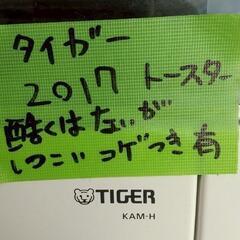 タイガー
2017 トースター
酷くはないが
しつこいコゲつき有
TIGER
KAM-H